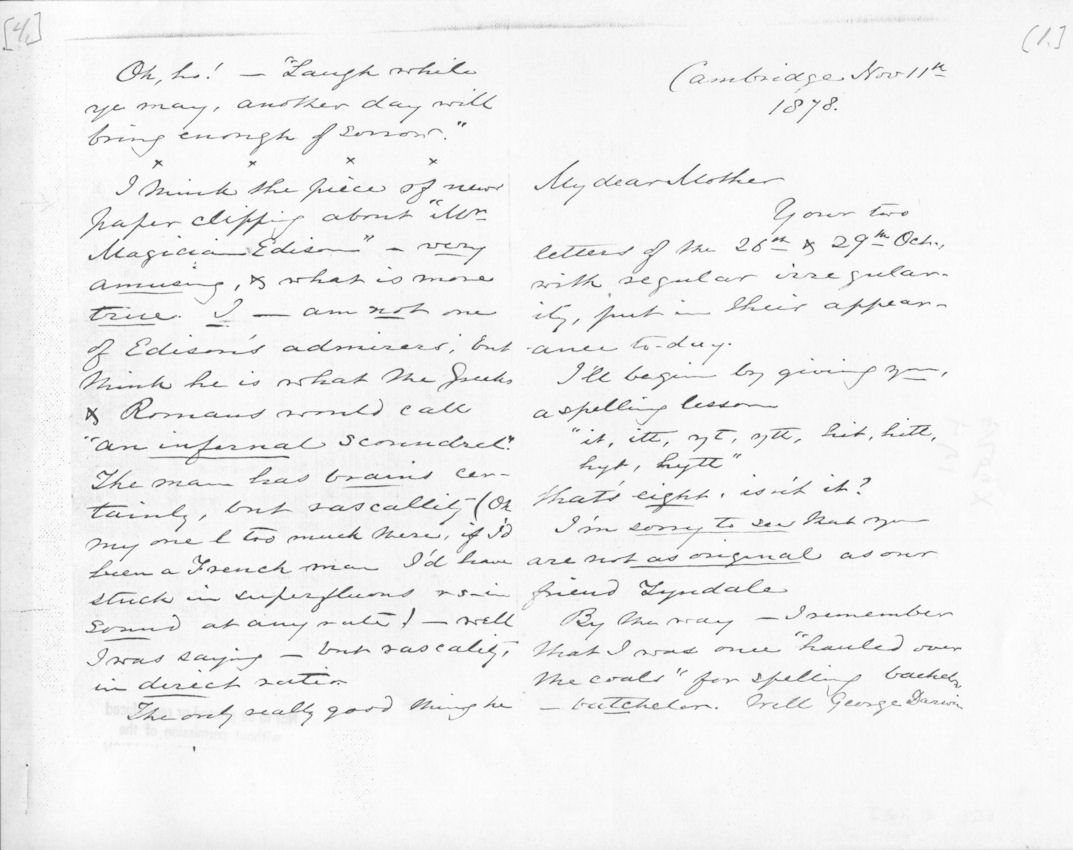 [4.]
Oh, ho! — "Laugh while
ye may, another day will
bring enough of sorrow."
x x x x
I think the piece of news
paper clipping about "Mr.
Magician Edison" — very
amusing, & what is more
true. I — am not one
of Edison's admirers, but
think he is what the Greeks
& Romans would call
"an infernal scoundrel".
The man has brains cer-
tainly, but rascallity (Oh
my one l too much there, if I'd
been a French man I'd have
stuck in superfluous r's in
sound at any rate) — well
I was saying — but rascality,
in direct ratio
The only really good thing he
(1.)
Cambridge Nov 11th
1878.
My dear Mother
Your two
letters of the 26th & 29th Oct.,
with regular irregular-
ity, put in their appear-
ance to-day.
I'll begin by giving you,
a spelling lesson
"it, itt, yt, ytt, hit, hitt,
hyt, hytt"
that's eight, isn't it?
I'm sorry to see that you
are not as original as our
friend Tyndale
By the way — I remember
that I was once "hauled over
the coals" for spelling bachelor
— batchelor. Will George Darwin